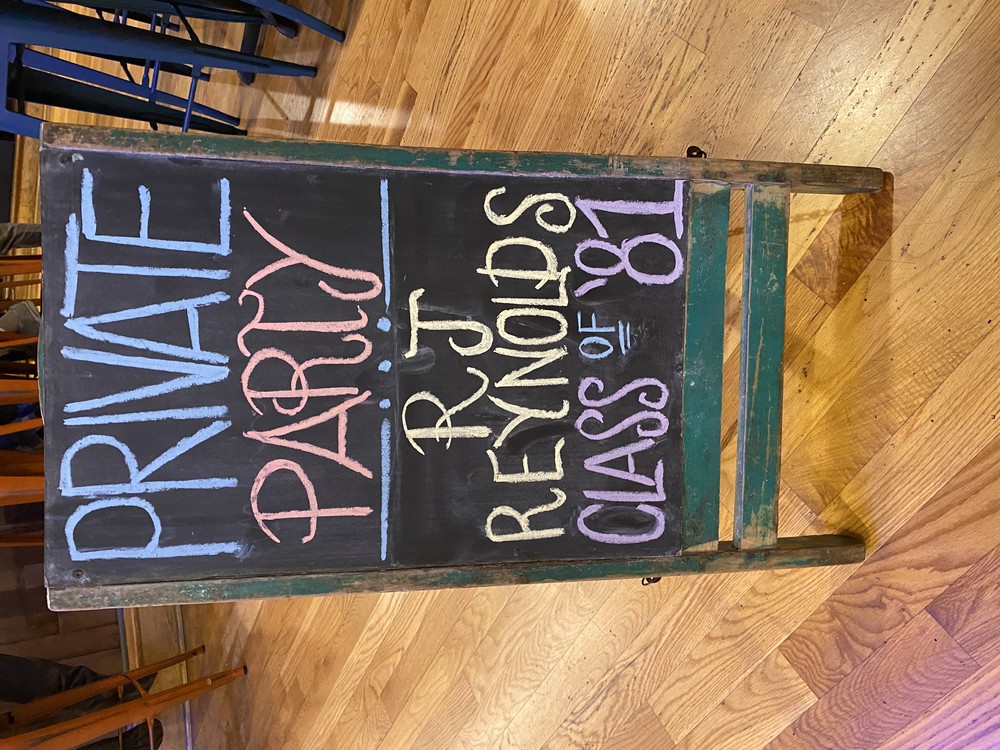 PRIVATE
PARTY
RJ
REYNOLDS
CLASS OF '81